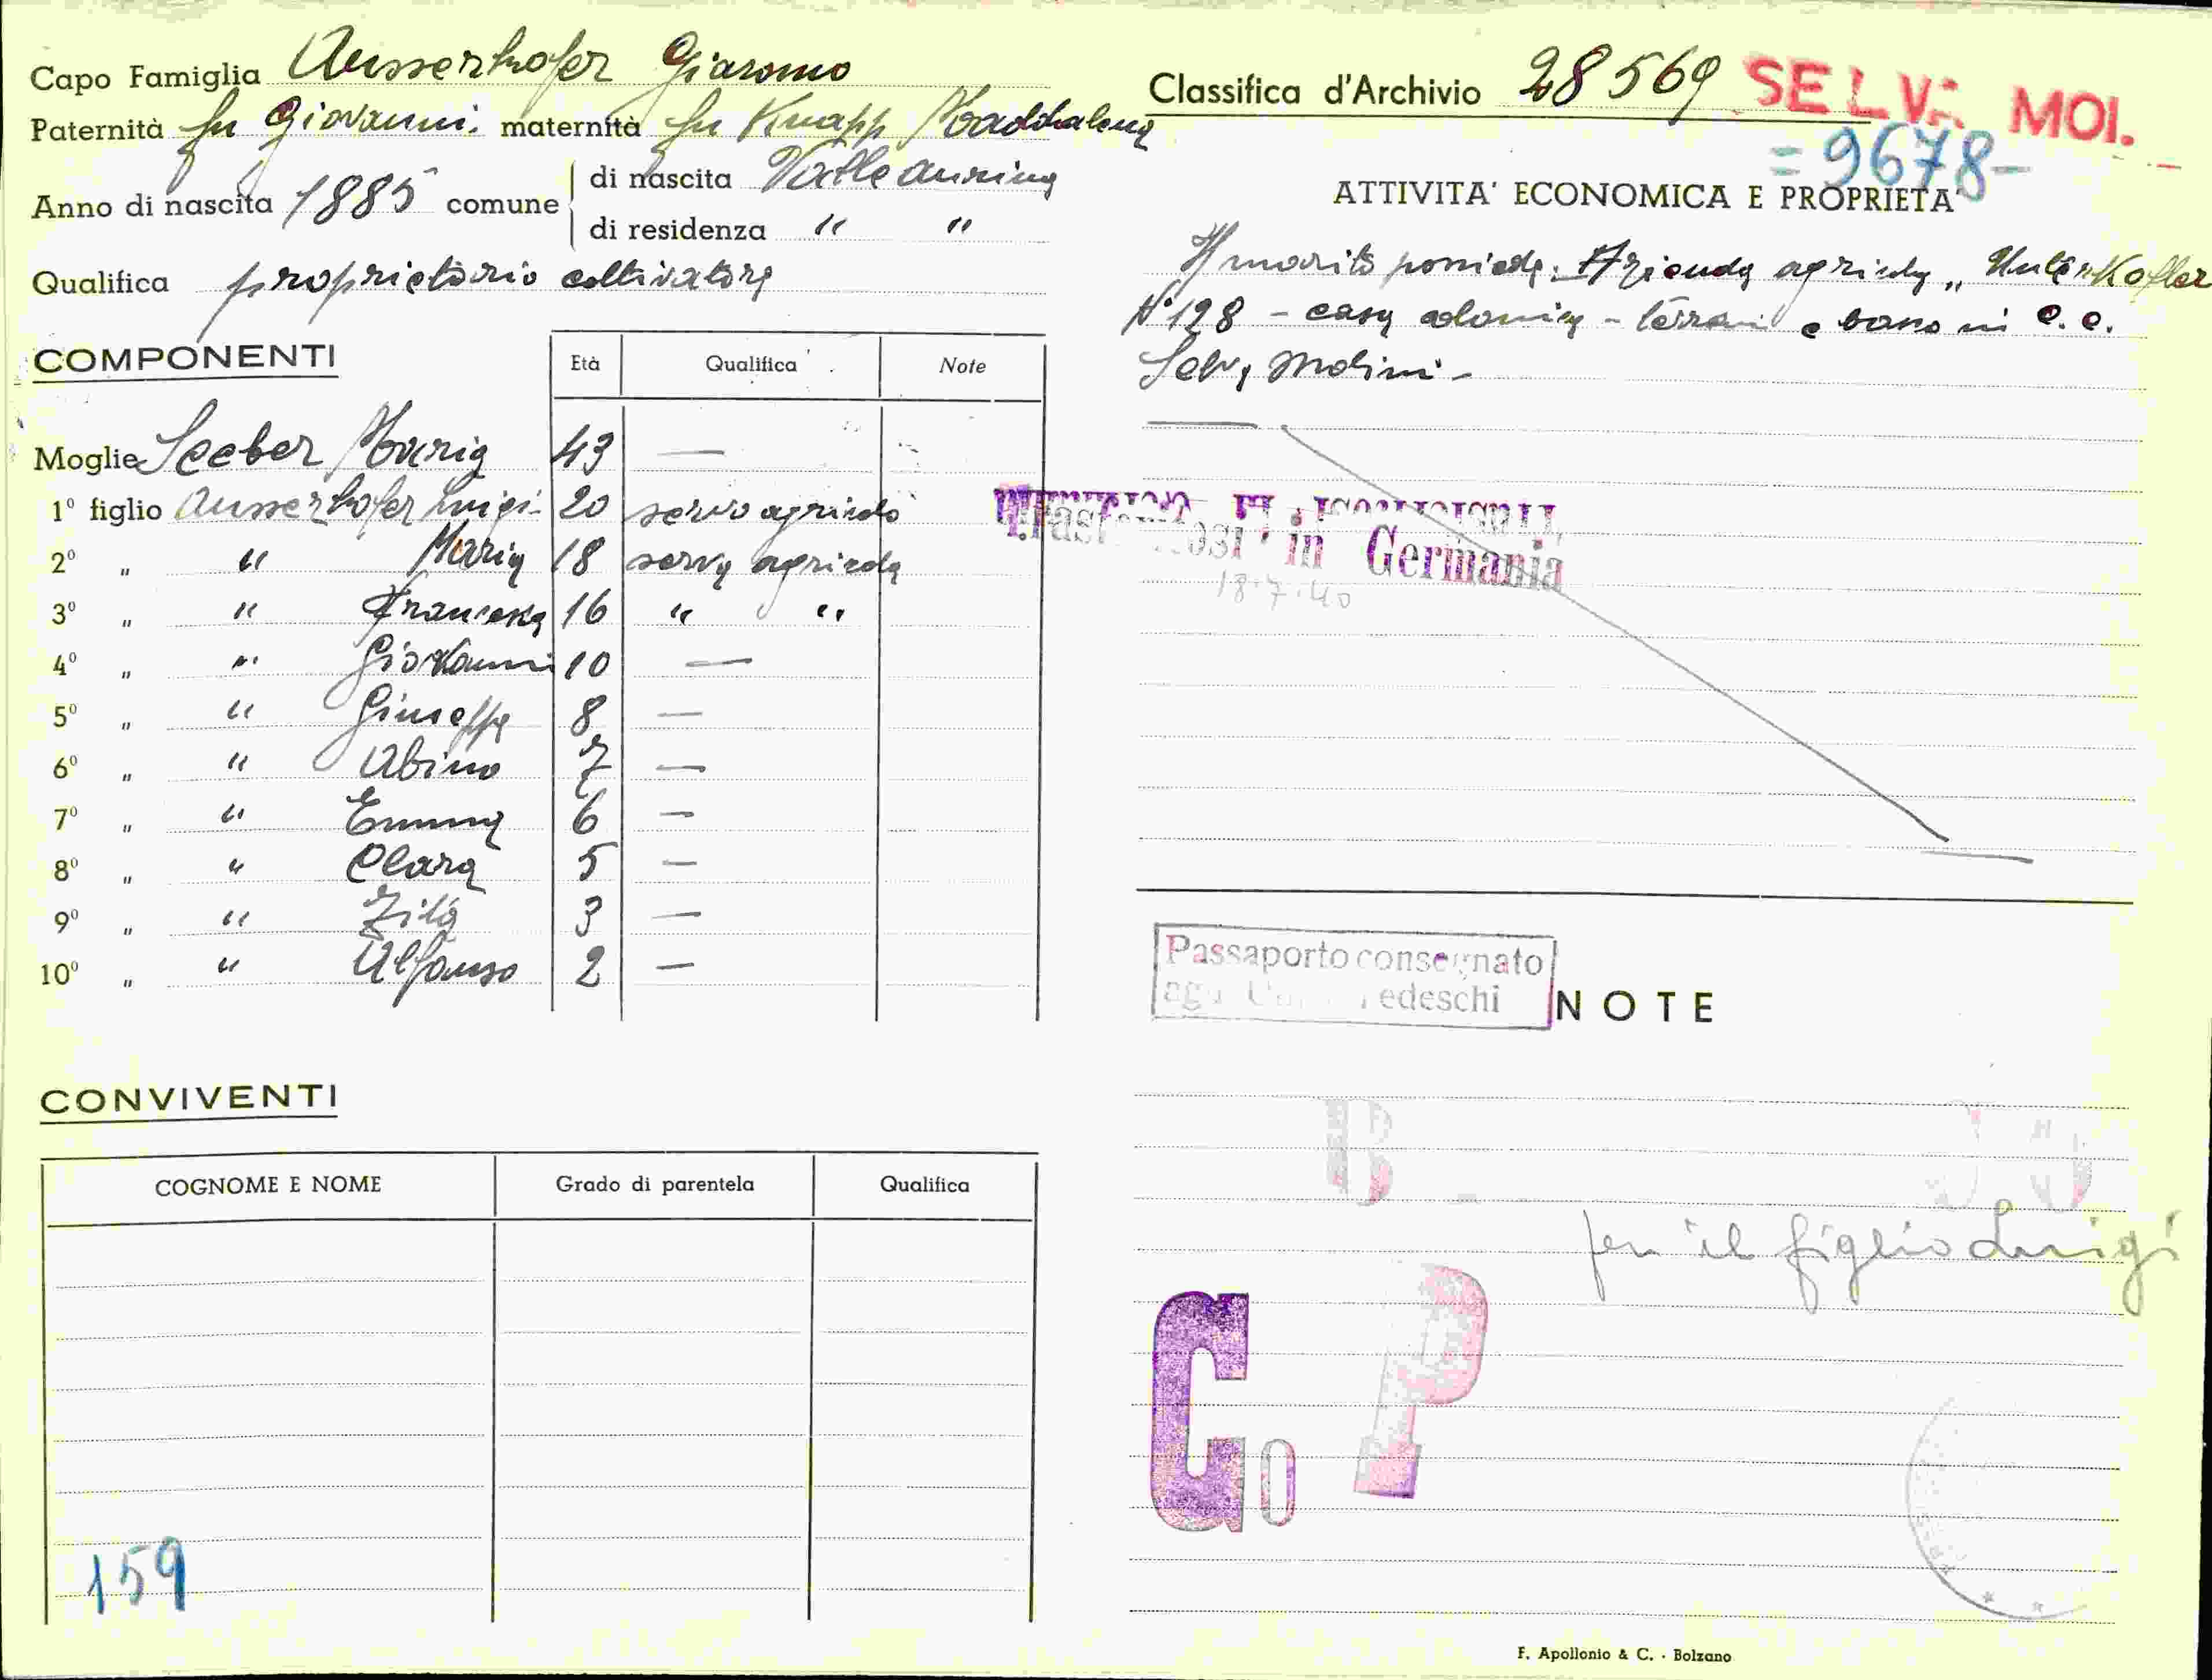 Capo Famiglia Ausserhofer Giacomo
Paternità fu Giovanni. maternità fu Knapp Maddalena
Anno di nascita 1885 comune di nascita Valle aurina
di residenza " "
Qualifica proprietario coltivatore
COMPONENTI
Età Qualifica Note
Moglie Seeber Maria 43 —
1º figlio Ausserhofer Luigi 20 servo agricolo
2º " " Maria 18 serva agricola
3º " " Francesca 16 " "
4º " " Giovanni 10 —
5º " " Giuseppe 8 —
6º " " Albino 7 —
7º " " Emma 6 —
8º " " Clara 5 —
9º " " Zita 3 —
10º " " Alfonso 2 —
CONVIVENTI
COGNOME E NOME Grado di parentela Qualifica
159
Classifica d'Archivio 28569 SELVA MOL.
=9678-
ATTIVITA' ECONOMICA E PROPRIETA'
Il marito possiede: Azienda agricola "Unterkofler
Nº 128 - casa colonica - terreni e bosco in C.C.
Selva Molini -
Trasferitosi in Germania
18.7.40
Passaporto consegnato
agli Uffici Tedeschi
NOTE
B
per il figlio Luigi
G. P
F. Apollonio & C. - Bolzano